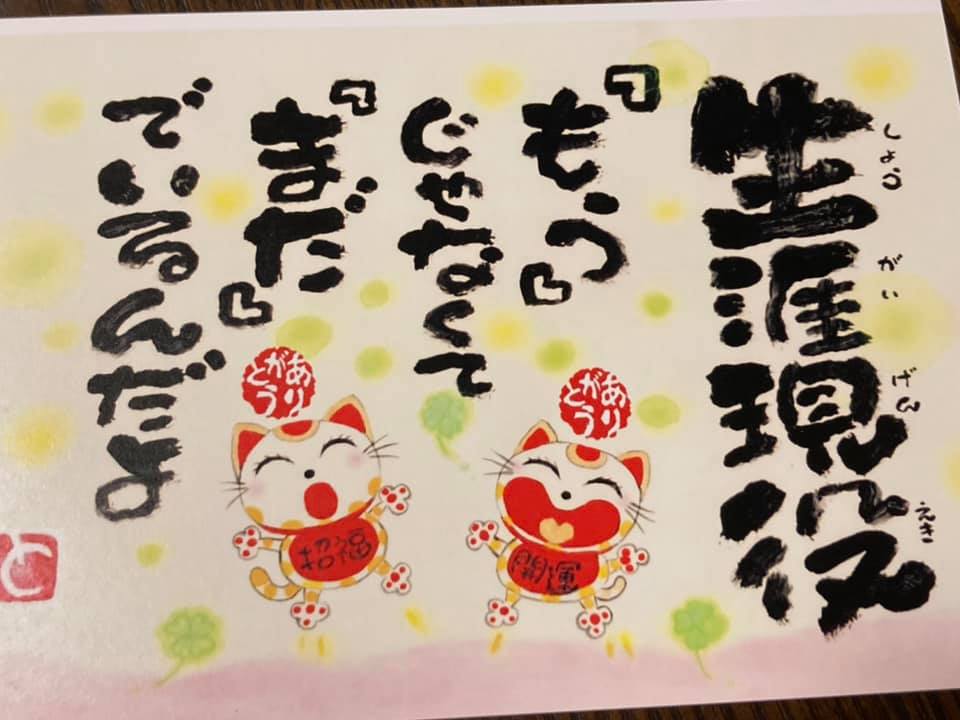 生涯現役
しょう
がい
げん
えき
『もう』
じゃなくて
『まだ』
でいるんだよ
ありがとう
開運
ありがとう
招福
と